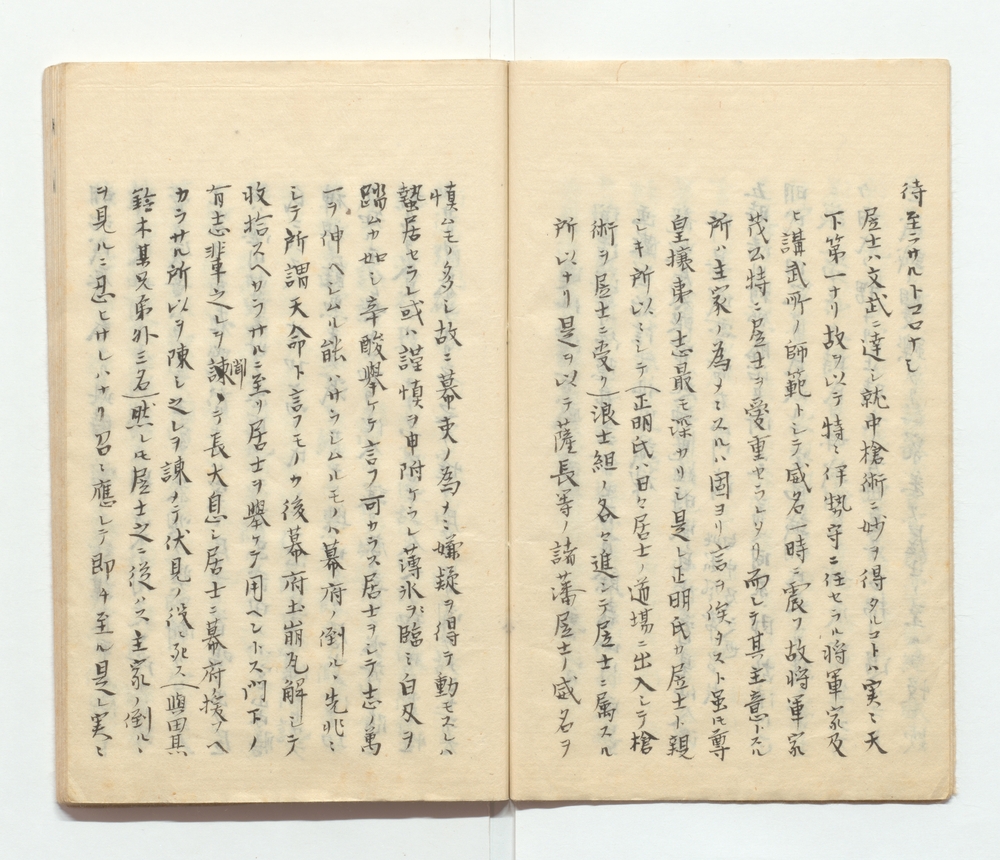 待至ラサルトコロナシ
居士ハ文武ニ達シ就中槍術ニ妙ヲ得タルコトハ実ニ天
下第一ナリ故ヲ以テ特ニ伊勢守ニ任セラル将軍家及
ヒ講武所ノ師範トシテ威名一時ニ震フ故将軍家
茂公特ニ居士ヲ愛重セラレタリ而シテ其主意トスル
所ハ主家ノ為メニスルハ固ヨリ言ヲ俟タスト虽𪜈尊
皇攘夷ノ志最モ深カリシ是レ正明氏カ居士ト親
シキ所以ニシテ(正明氏ハ日々居士ノ道場ニ出入シテ槍
術ヲ居士ニ受ク)浪士組ノ各々進シテ居士ニ属スル
所以ナリ是ヲ以テ薩長等ノ諸藩居士ノ威名ヲ
慎ムモノ多シ故ニ幕吏ノ為メニ嫌疑ヲ得テ動モスレハ
蟄居セラレ或ハ謹慎ヲ申附ケラレ薄氷ニ臨ミ白刄ヲ
踏ムカ如シ辛酸挙ケテ言フ可カラス居士ヲシテ志ノ萬
一ヲ伸ヘシムル能ハサラシムルモノハ幕府ノ倒ルヽ先兆ニ
シテ所謂天命ト言フモノカ後幕府土崩瓦解シテ
收拾スヘカラサルニ至リ居士ヲ挙ケテ用ヘントス門下ノ
有志輩之レヲ聞テ長大息シ居士ニ幕府援フヘ
カラサル所以ヲ陳シ之レヲ諫メテ伏見ノ役ニ死ス(與田某
鈴木某兄弟外三名)然レ𪜈居士之ニ從ハス主家ノ倒ルヽ
ヲ見ルニ忍ヒサレハナリ召ニ應シテ即チ至ル是レ実ニ